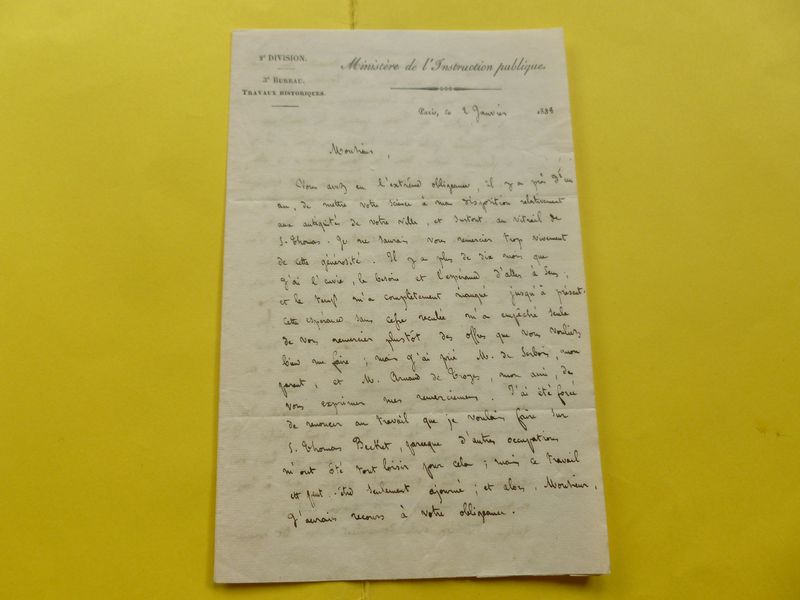 2e DIVISION.
3e BUREAU.
TRAVAUX HISTORIQUES.
Ministère de l'Instruction publique.
Paris, le 2 Janvier 1838
Monsieur,
Vous avez eu l'extrême obligeance, il y a près d'un
an, de mettre votre science à ma disposition relativement
aux antiquités de votre ville, et surtout au vitrail de
S. Thomas. Je ne saurais vous remercier trop vivement
de cette générosité. Il y a plus de dix mois que
j'ai l'envie, le besoin et l'espérance d'aller à Sens,
et le temps m'a complètement manqué jusqu'à présent.
Cette espérance sans cesse reculée m'a empêché seule
de vous remercier plustôt des offres que vous vouliez
bien me faire ; mais j'ai prié M. de , mon
parent, et M. Arnaud de Troyes, mon ami, de
vous exprimer mes remerciemens. J'ai été forcé
de renoncer au travail que je voulais faire sur
S. Thomas Becket, parceque d'autres occupations
m'ont ôté tout loisir pour cela ; mais ce travail
est peut-être seulement ajourné ; et alors, Monsieur,
j'aurais recours à votre obligeance.